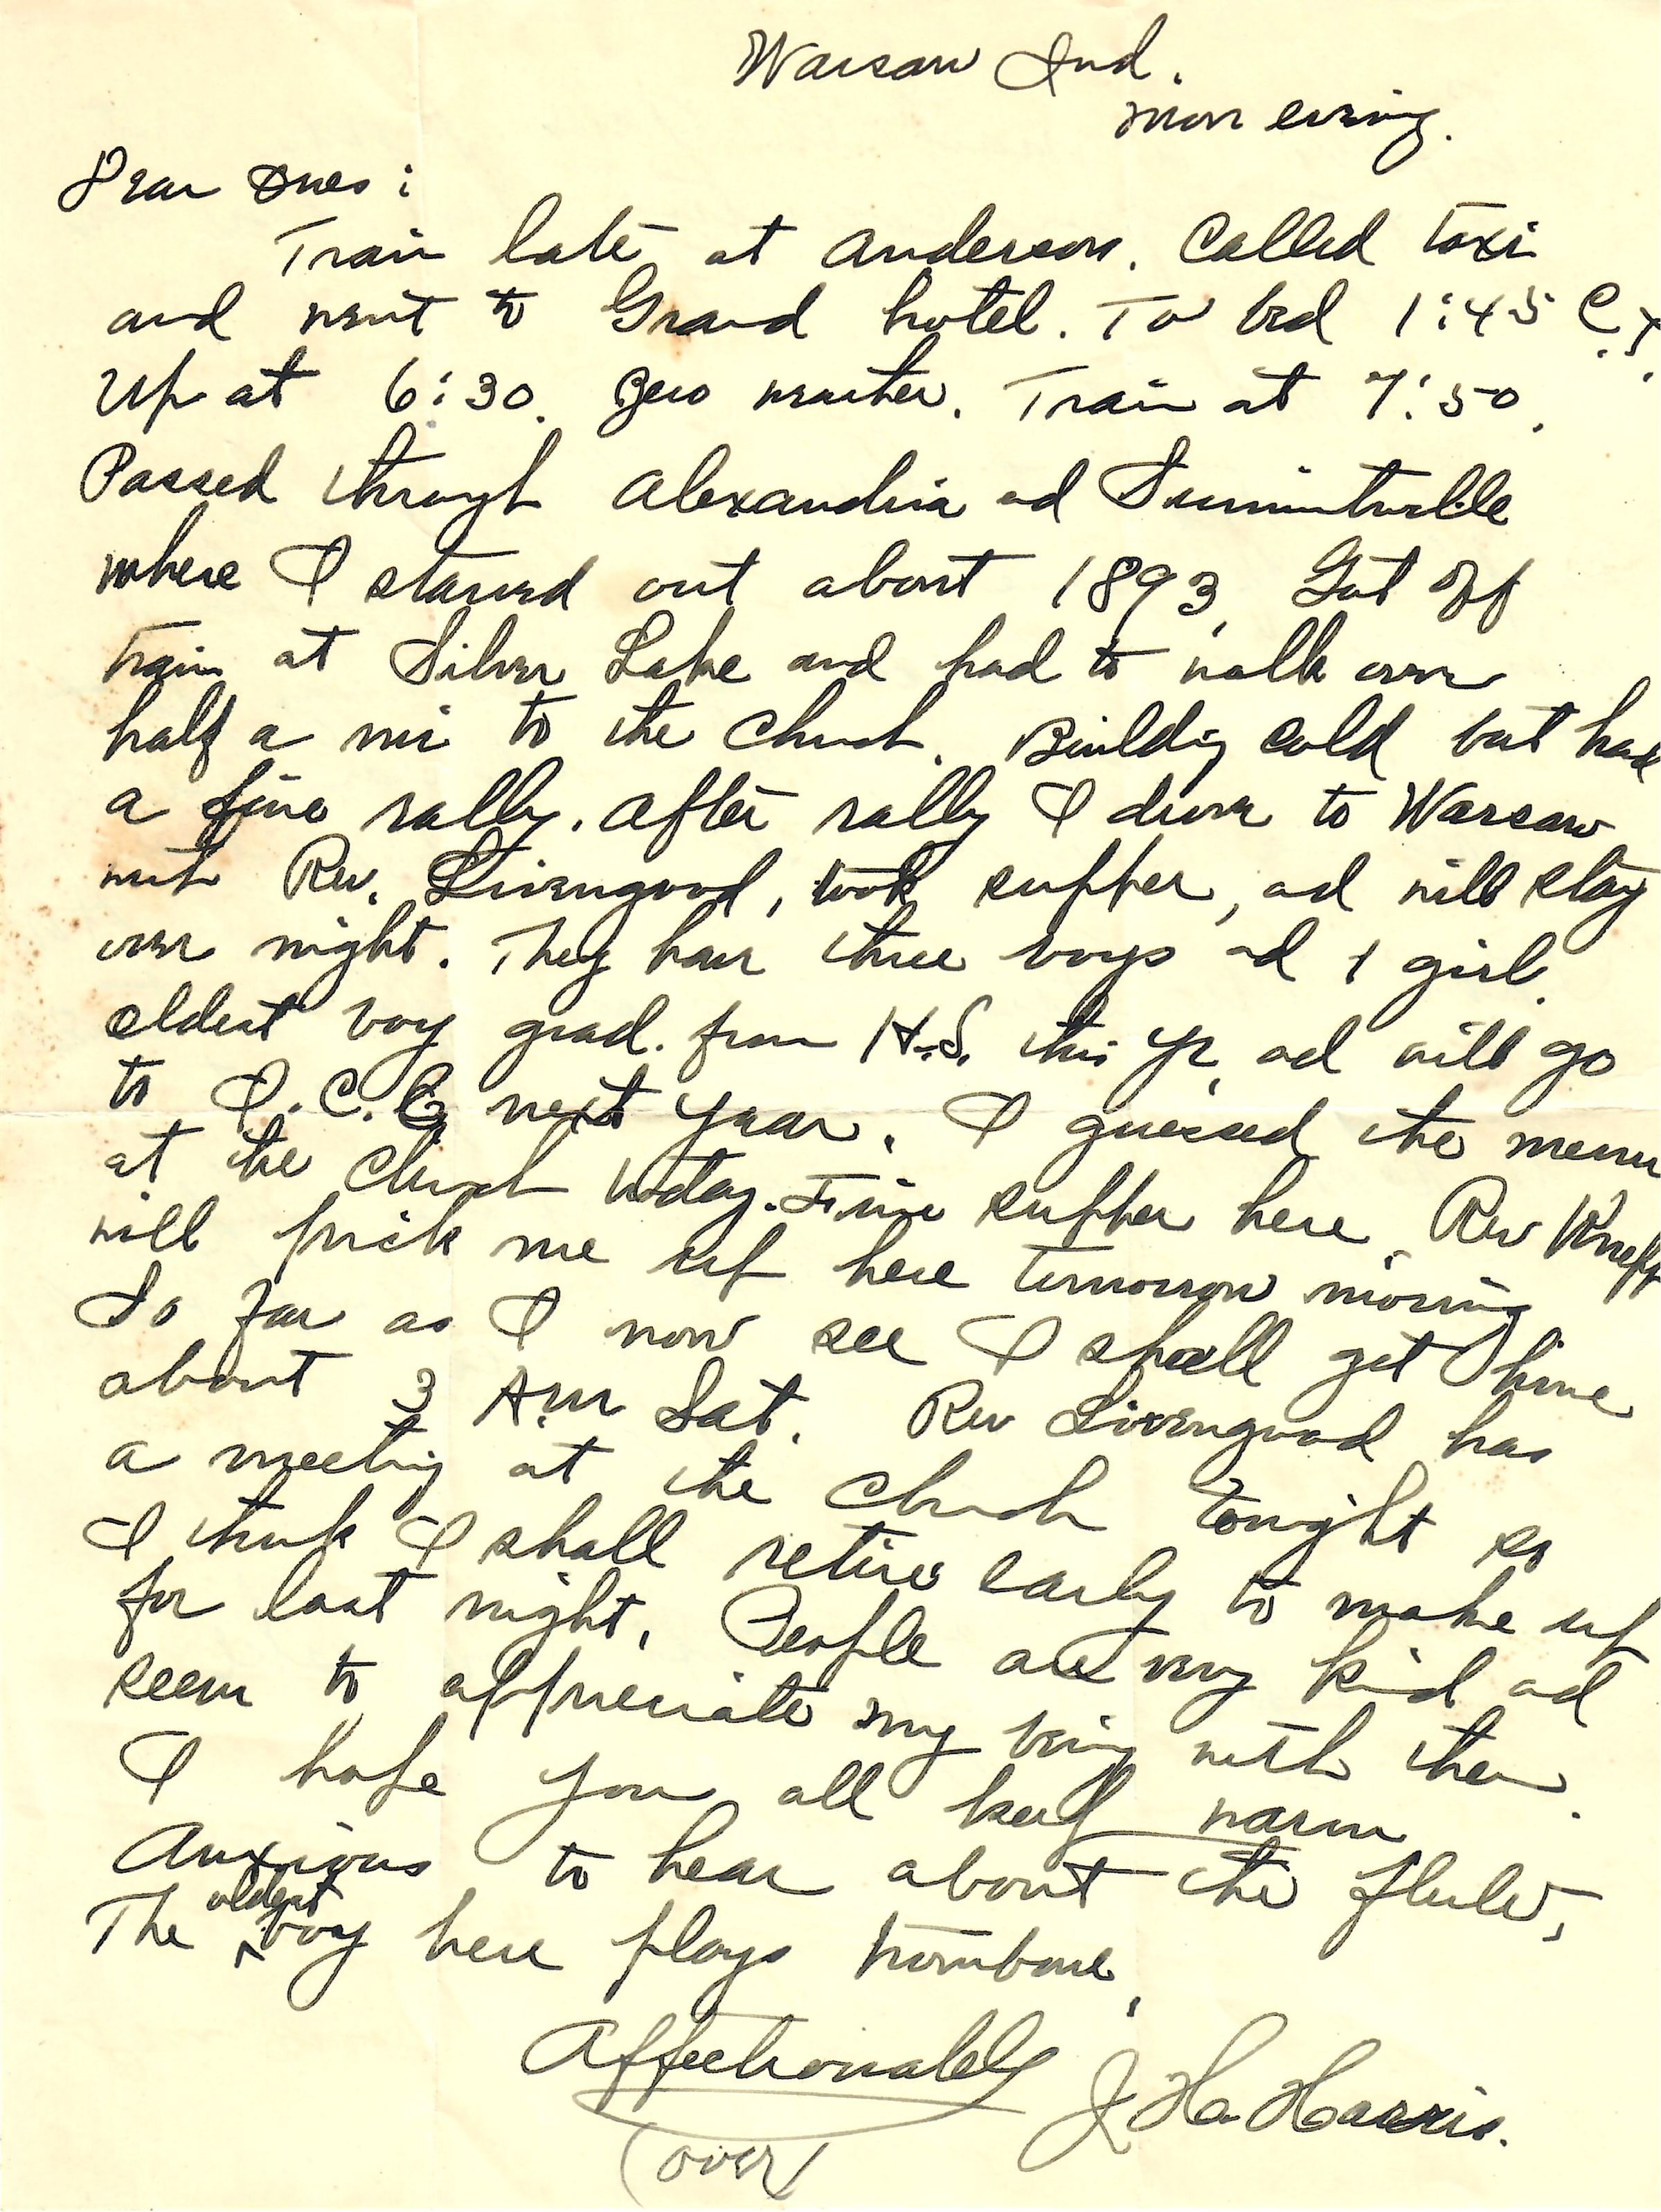 Warsaw Ind.
Mon evening.
Dear Ones:
Train late at Anderson. Called taxi
and went to Grand hotel. To bed 1:45 C.T.
Up at 6:30. Zero weather. Train at 7:50.
Passed through Alexandria ad Summitville
where I started out about 1893. Got off
train at Silver Lake and had to walk over
half a mi to the church. Building cold but had
a fine rally. After rally I drove to Warsaw
with Rev. Livengood, took supper, ad will stay
over night. They have three boys ad 1 girl.
eldest boy grad. from H.S. this yr, ad will go
to I.C.C. next year. I guessed the menu
at the church today. Fine supper here. Rev
will pick me up here tomorrow morning
So far as I now see I shall get home
about 3 A.M Sat. Rev Livengood has
a meeting at the church tonight so
I think I shall retire early to make up
for last night. People are very kind ad
seem to appreciate my being with them.
I hope you all keep warm
Anxious to hear about the
The oldest boy here plays trombone.
Affectionately J. H. Harris.
(over)